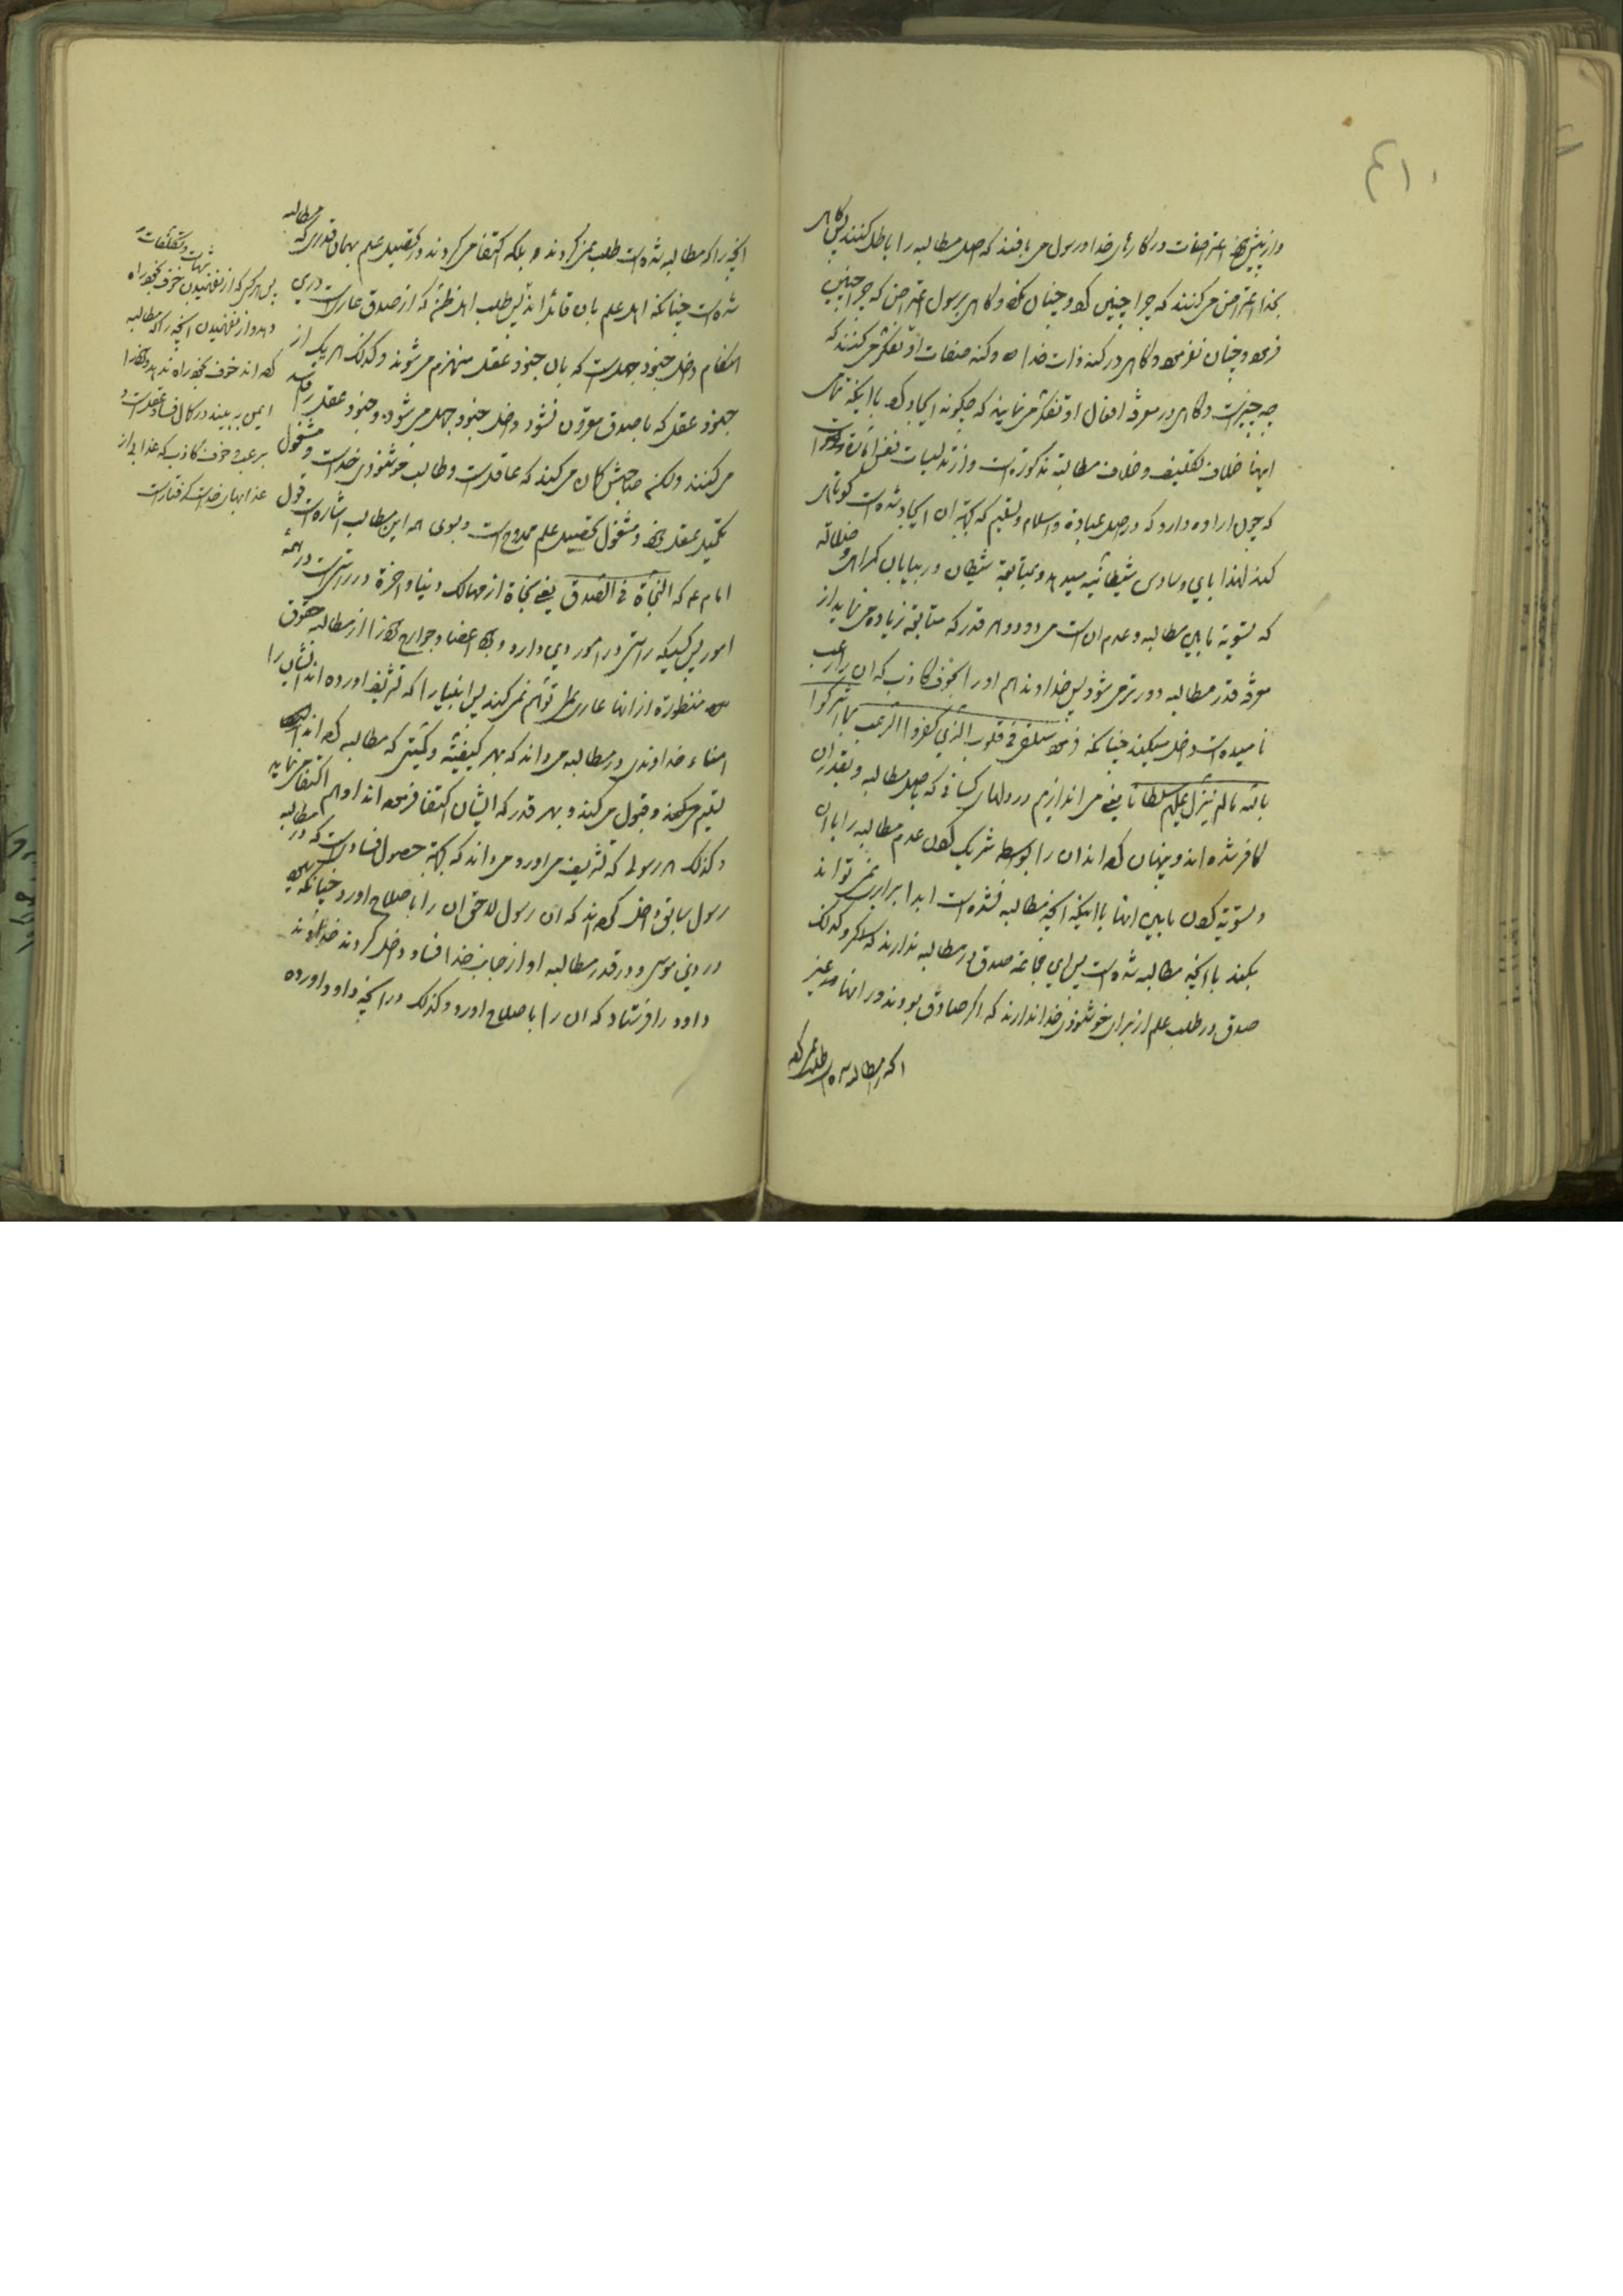 واز پیش خود اعتراضات در کارهای خدا ورسول می بافند که اصل مطالبه را باطل کنند پس گاهی
بخدا اعتراض می کنند که چرا چنین کرد وچنان نکرد وگاهی برسول اعتراض که چرا چنین
فرمود وچنان نفرمود وگاهی در کنه ذات خدا وکنه صفات او تفکر می کنند که
چه چیز است وگاهی در معرفة افعال او تفکر می نمایند که چگونه ایجاد کرد با اینکه تمامی
اینها خلاف تکلیف وخلاف مطالبه مذکوره است واز تدلیسات نفس اماره
که چون اراده دارد که در اصل عبادة واسلام وتسلیم که بجهة ان ایجاد شده است کوتاهی
کند لهذا باین وساوس شیطانیه میدهد وبمتابعة شیطان در بیابان گمراهی وضلالة
که تسویة مابین مطالبه وعدم ان است می رود وهر قدر که متابعة زیاده می نماید از
معرفة قدر مطالبه دورتر می شود پس خداوند هم او را بخوف کاذب که ان را رعب
نامیده است داخل میکند چنانکه فرموده سنلقی فی قلوب الذین کفروا الرعب بما اشرکوا
بالله ما لم ینزل علیهم سلطانا یعنی می اندازیم در دلهای کسانی که باصل مطالبه وبقدر ان
کافر شده اند وپنهان کرده اند ان را بواسطه شریک کردن عدم مطالبه را با ان
وتسویة کردن مابین اینها با اینکه انچه مطالبه نشده است ابدا برابری نمی تواند
بکند با انچه مطالبه شده است پس این جماعة صدق در مطالبه ندارند وکذلک
صدق در طلب علم از برای خوشنودی خدا ندارند که اگر صادق بودند در انها غیر
انچه را که مطالبه شده است طلب نمی کردند
انچه را که مطالبه شده است طلب نمی کردند بلکه اکتفا می کردند در تحصیل علم بهمان قدری که مطالبه
شده است چنانکه اهل علم بان قائل اند پس طلب اهل ظن که از صدق عاری است در این
مقام داخل جنود جهل است که بان جنود عقل منهزم می شوند وکذلک هر یک از
جنود عقل که با صدق مقرون نشود داخل جنود جهل می شود وجنود عقل را فاسد
می کنند ولکن صاحبش گمان می کند که عاقل است وطالب خوشنودی خدا است ومشغول
تکمیل عقل خود ومشغول تحصیل علم ممدوح است وبسوی همه این مطالب اشاره است قول
امام ع که النجاة فی الصدق یعنی نجاة از مهالک دنیا واخرة در راستی است در همه
امور پس کسیکه راستی در امور دین دارد وجمیع اعضا وجوارح خود را از مطالبه حقوق
منظوره از انها عاری توهم نمی کند پس انبیا را که تشریف اورده اند ایشان را
امناء خداوندی در مطالبه می داند که بهر کیفیتی وکمیتی که مطالبه کرده اند
تسلیم می کند وقبول می کند وبهر قدر که ایشان اکتفا فرموده اند او هم اکتفا می نماید
وکذلک هر رسولی که تشریف می اورد می داند که بجهة حصول فساد است که در مطالبه
رسول سابق داخل کرده اند که ان رسول لاحق ان را باصلاح اورد چنانکه
در دین موسی ودر قدر مطالبه او از جانب خدا فساد داخل کردند خداوند
داود را فرستاد که ان را باصلاح اورد وکذلک در انچه داود اورده
شبهات وتکلفات
پس هر کس که از نفهمیدن خوف بخود راه
دهد واز نفهمیدن انچه را که مطالبه
کرده اند خوف بخود راه ندهد وخود را
ایمن ببیند در کمال فساد عقل است و
برعب وخوف کاذب که عذابی از
عذابهای خدا است گرفتار است